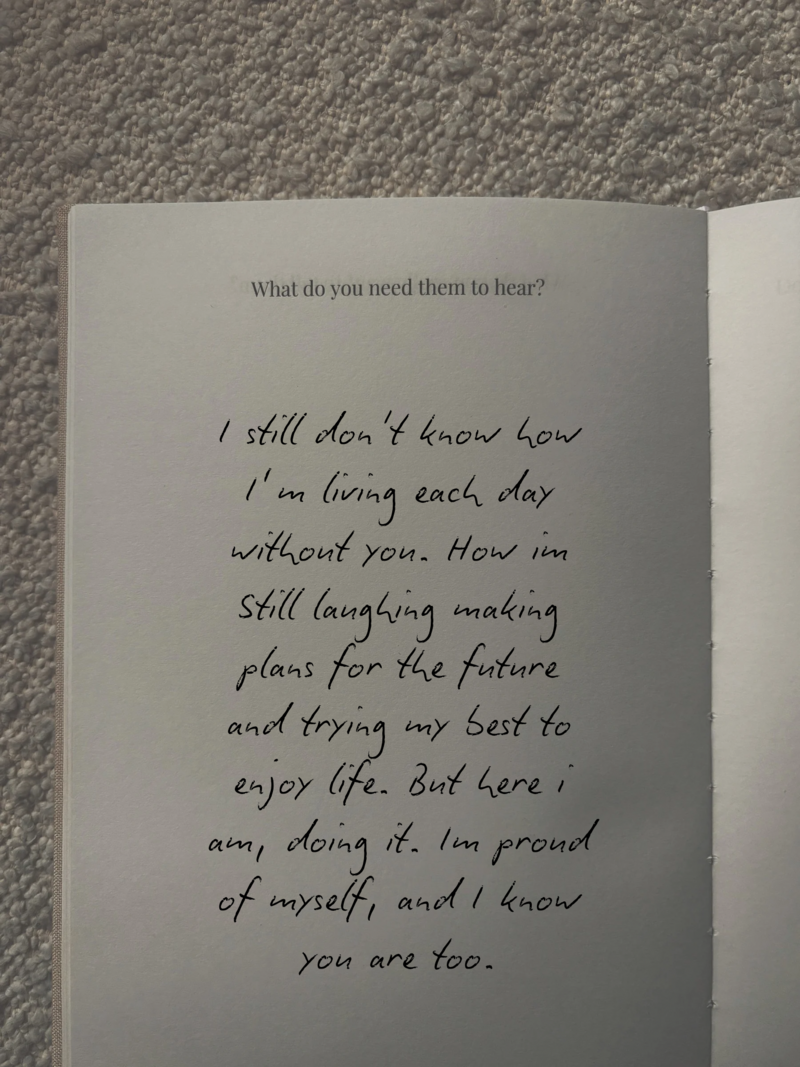 What do you need them to hear?
I still don't know how
I'm living each day
without you. How im
Still laughing making
plans for the future
and trying my best to
enjoy life. But here i
am, doing it. Im proud
of myself, and I know
you are too.